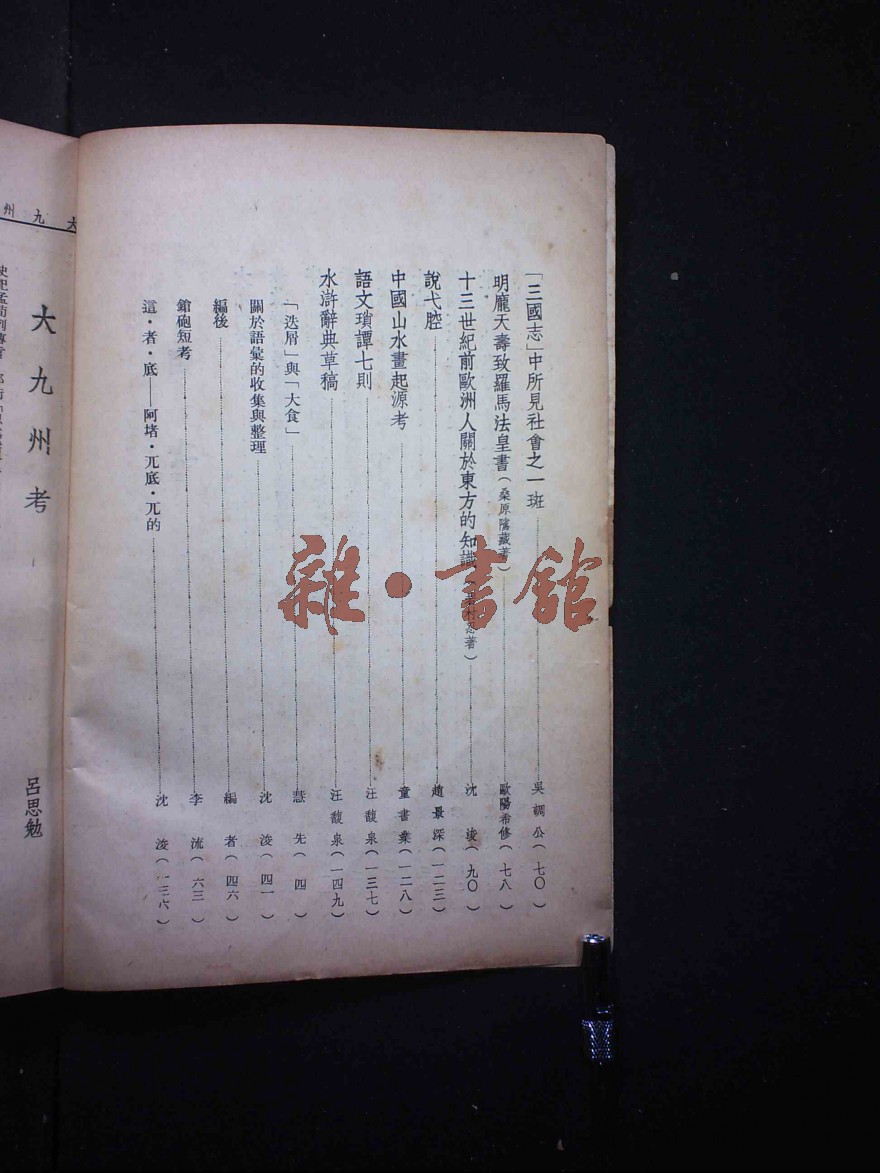 「三國志」中所見社會之一斑⋯⋯吳調公(七〇)
明龐天壽致羅馬法皇書(桑原隲藏著)⋯⋯歐陽希修(七八)
十三世紀前歐洲人關於東方的知識⋯⋯著)⋯⋯沈 (九〇)
說弋腔⋯⋯趙景深(一二三)
中國山水畫起源考⋯⋯童書業(一二八)
語文瑣譚七則⋯⋯汪馥泉(一三七)
水滸辭典草稿⋯⋯汪馥泉(一四九)
「迭屑」與「大食」⋯⋯慧先(四)
關於語彙的收集與整理⋯⋯沈浚(四一)
編後⋯⋯編者(四六)
鎗砲短考⋯⋯李流(六三)
這・者・底——阿堵・兀底・兀的⋯⋯沈浚(一三六)
大九州
大九州考
呂思勉
雜・書館